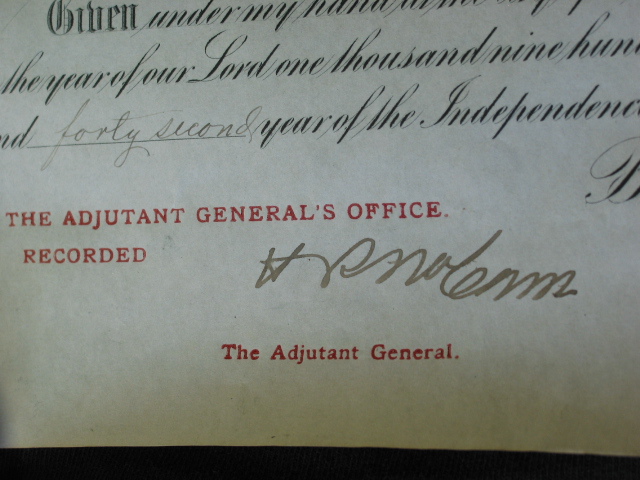 Given under my hand at the
the year of our Lord one thousand nine hund
nd forty second year of the Independence
B
THE ADJUTANT GENERAL'S OFFICE.
RECORDED
H P McCain
The Adjutant General.